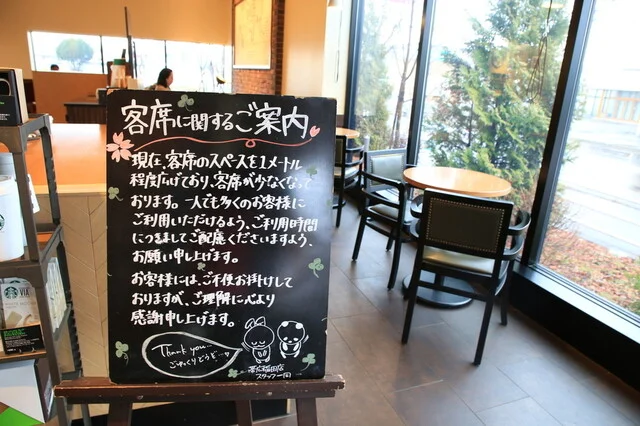 客席に関するご案内
現在、客席のスペースを1メートル
程度広げており、客席が少なくなって
おります。一人でも多くのお客様に
ご利用いただけるよう、ご利用時間
につきましてご配慮くださいますよう、
お願い申し上げます。
お客様には、ご不便お掛けして
おりますが、ご理解に心より
感謝申し上げます。
Thank you
ごゆっくりどうぞ
帯広稲田店
スタッフ一同
VIA